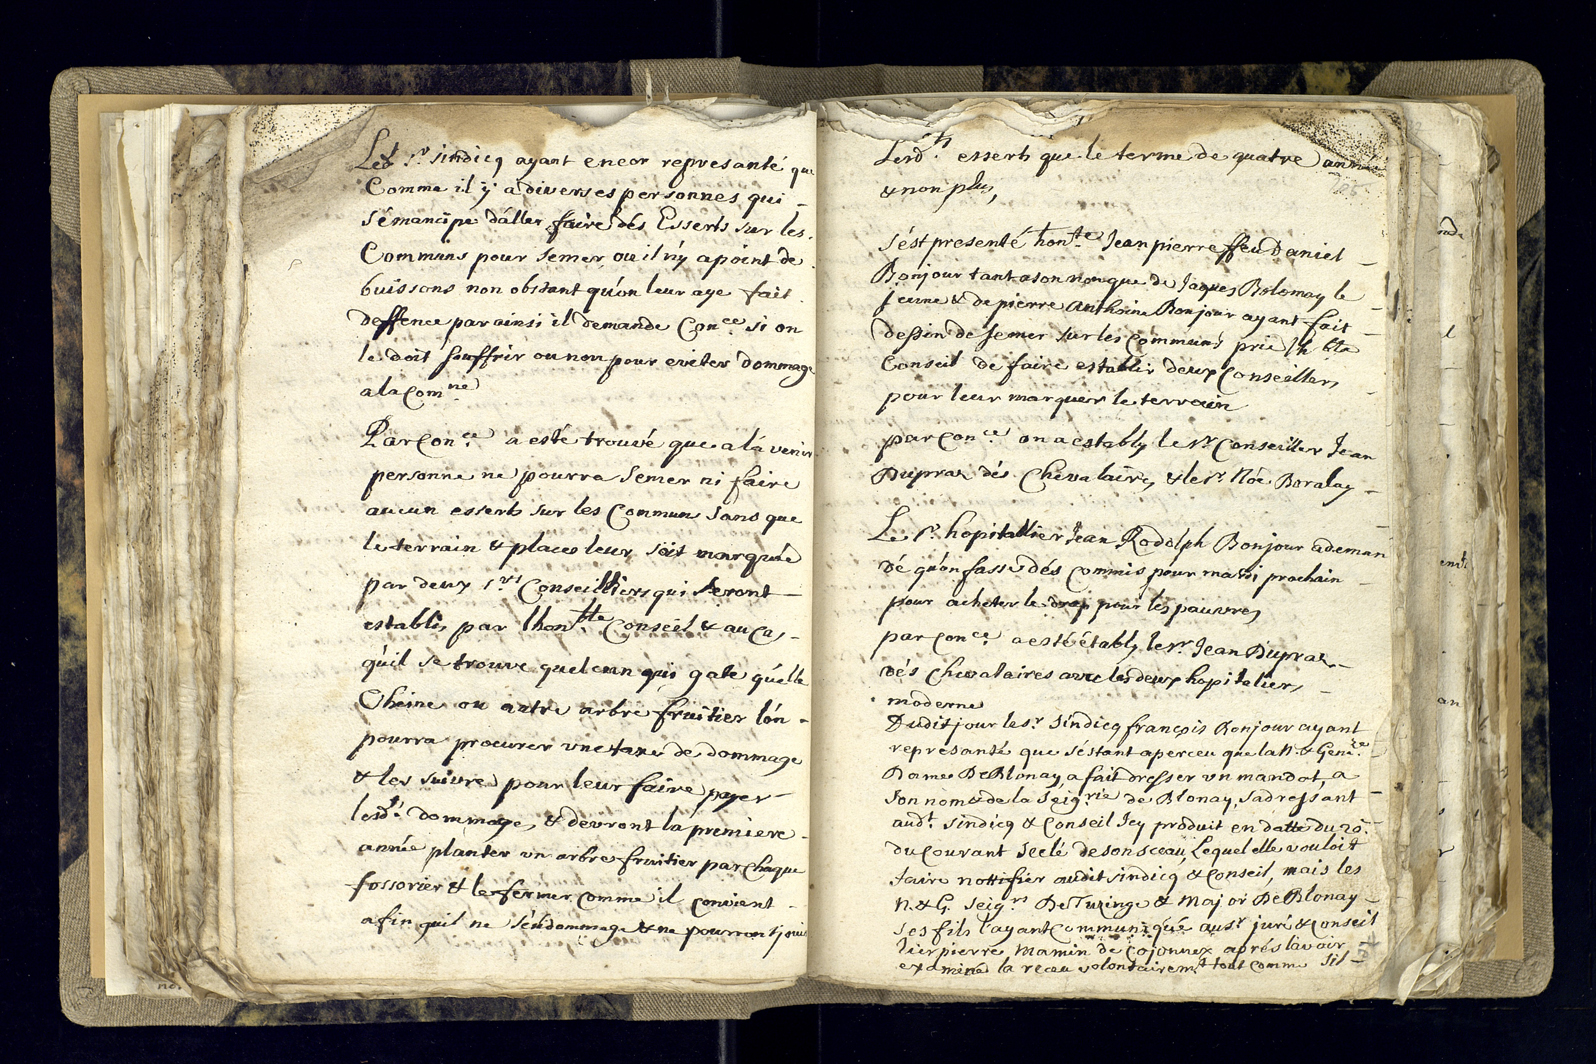 Led.t S.r Sindicq ayant encor represanté que
Comme il y a diverses personnes qui
s'émancipe d'áller faire dés Esserts sur les
Communs pour semer, ou il n'y a point de
buissons non obstant qu'on leur aye fait
deffence par ainsi il demande Con.ce si on
le doit souffrir ou non pour eviter dommage
a la Com.ne
Par Con.ce a esté trouvé que a lá venir
personne ne pourra Semer ni faire
aucun esserts sur les Communs sans que
le terrain & places leur soit marquée
par deux s.rs Conseilliers qui seront
establis par lhon.ble Conseil & au Cas
qu'il se trouve quelcun qui gate quélle
Chéine ou autre arbre fruitier lón
pourra procurer une taxe de dommage
& les suivre pour leur faire payer
lesd.t dommages, & devront la premiere
année planter un arbre fruitier par chaque
fossorier & le fermer comme il convient
afin quil ne s'éndommage & ne pourront joui
Lesd.ts esserts que le terme de quatre année
& non plus,
s'ést presenté hon.te Jean pierre ffeu Daniel
Bonjour tant a son nom que de Jaques Bolomay le
jeune & de pierre Anthoine Bonjour ayant fait
dessin de semer sur les communs prie lh ble
Conseil de faire establir deux Conseillers
pour leur marquer le terrain
par Con.ce on a establÿ le s.r Conseiller Jean
Dupraz dés Chevalaires, & le s.r Noé Boralay
Le S.r hopitallier Jean Rodolph Bonjour a deman
dé qu'on fasse dés Commis pour mardi prochain
pour acheter le drap pour lés pauvres
par Con.ce a esté étably le s.r Jean Dupraz
dés Chevalaires avec les deux hopitaliers
moderne
Dudit jour le s.r Sindicq françois Bonjour ayant
represanté que s'éstant aperceu que la N. & Gene.se
Dame De Blonay a fait dresser un mandat, a
son nom & de la Seig.rie de Blonay, s'adressant
aud.t Sindicq & Conseil Icy produit en datte du 20.e
du Courant seelé de son sceau, Lequel elle vouloit
faire nottifier audit sindicq & Conseil, mais les
N. & G. Seig.rs De Turinge & Major De Blonay
ses fils l'ayant communiqué au s.r juré & conseil
lier pierre Mamin de Cojonnex aprés lávoir
examiné la receu volontairem.t tout comme sil